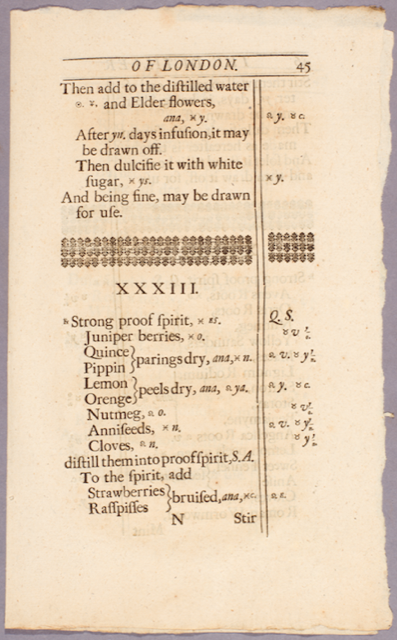 OF LONDON. 45
Then add to the distilled water
☉. ☿. and Elder flowers,
ana, × y. ☊ y. ♉ c.
After yn. days infusion, it may
be drawn off.
Then dulcifie it with white
sugar, × ys. × y.
And being fine, may be drawn
for use.
XXXIII.
Strong proof spirit, × es. Q. S.
Juniper berries, × o.
Quince
Pippin } parings dry, ana, × n.
Lemon
Orenge } peels dry, ana, ya. y. ♉ c.
Nutmeg, o.
Anniseeds, × n.
Cloves, n.
distill them into proof spirit, S.A.
To the spirit, add
Strawberries
Raspisses } bruised, ana, × c.
N Stir